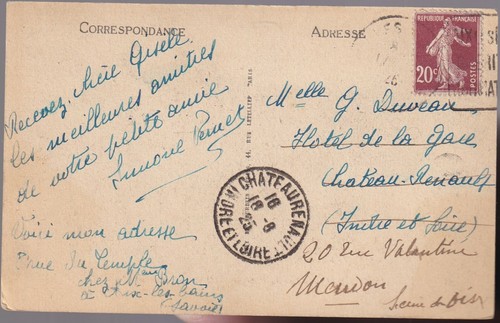 CORRESPONDANCE
Recevez, chère Gisell
les meilleures amitiés
de votre petite amie
Simone
Voici mon adresse
rue du Temple
chez
à Aix-les-Bains
(Savoie)
ADRESSE
Melle G. Duveau
Hotel de la Gare
Chateau-Renault
(Indre et Loire)
20 rue Valentine
Meudon
Seine et Oise
REPUBLIQUE FRANÇAISE
20c
POSTES
CHATEAURENAULT
INDRE ET LOIRE
16
16-8
25